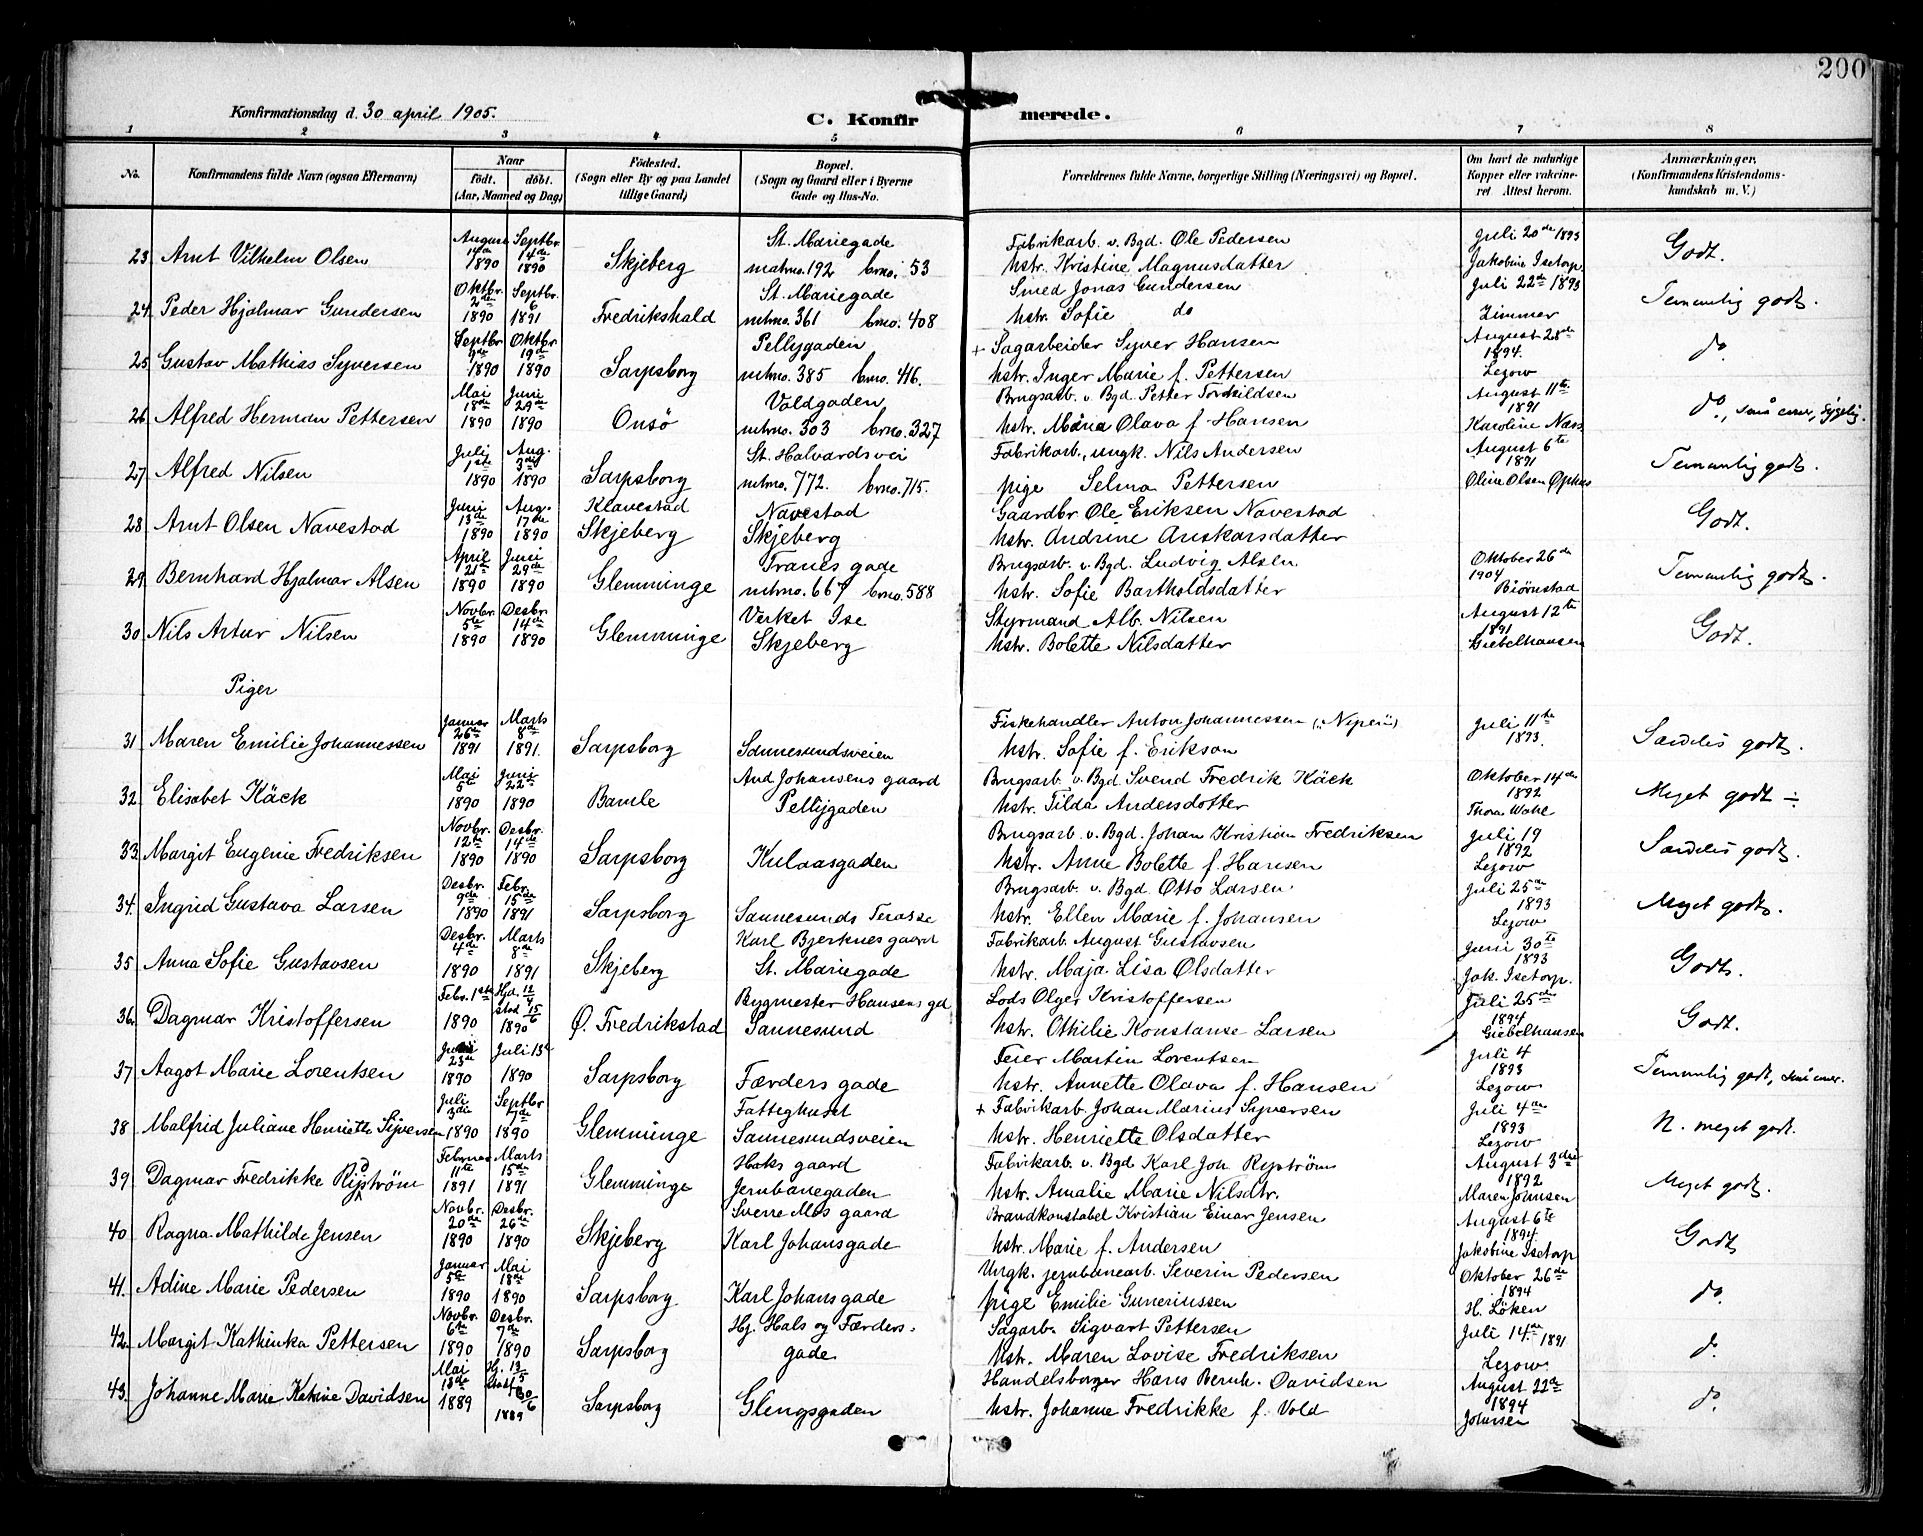 200
Konfirmationsdag d. 30 april 1905.
C. Konfirmerede.
1 2 3 4 5 6 7 8
No.
Konfirmandens fulde Navn (ogsaa Efternavn)
Naar
født. døbt.
(Aar, Maaned og Dag)
Fødested.
(Sogn eller By og paa Landet
tillige Gaard)
Bopæl.
(Sogn og Gaard eller i Byerne
Gade og Hus-No.
Forældrenes fulde Navne, borgerlige Stilling (Næringsvei) og Bopæl.
Om havt de naturlige
Kopper eller vakcine-
ret. Attest herom.
Anmærkninger,
(Konfirmandens Kristendoms-
kundskab m. V.)
August Septbr. St. Mariegade Fabrikarb. v. Bgd. Ole Pedersen Juli 20de 1893
23. Arnt Vilhelm Olsen 14de 1890 14de 1890 Skjeberg matrno. 192 brno. 53 hstr. Kristine Magnusdatter Jakobine Isetorp. Godt.
Oktbr. Septbr. St. Mariegade Smed Jonas Gundersen Juli 22de 1893
24. Peder Hjalmar Gundersen 2de 1890 6 1891 Fredrikshald mtrno. 361 brno. 408 hstr. Sofie do Zimmer Temmelig godt.
Septbr. Oktbr. Pellygaden + Sagarbeider Syver Hansen August 28de
25. Gustav Mathias Syversen 9de 1890 19de 1890 Sarpsborg mtrno. 385 brno. 416. hstr. Inger Marie f. Pettersen 1894. Lezow do.
Mai Juni Voldgaden Brugsarb. v. Bgd. Petter Torkildsen August 11te
26. Alfred Herman Pettersen 18de 1890 29de 1890 Onsö mtrno. 303 brno. 327 hstr. Maria Olava f. Hansen 1891 Karoline Næss do., små evner, sygelig.
Juli Aug. St. Halvardsvei Fabrikarb., ungk. Nils Andersen August 6te
27. Alfred Nilsen 1ste 1890 3de 1890 Sarpsborg mtrno. 772. brno. 715. pige Selma Pettersen 1891 Oline Olsen Ophus Temmelig godt.
Juni Aug. Klavestad Navestad Gaardbr Ole Eriksen Navestad
28. Arnt Olsen Navestad 13de 1890 17de 1890 Skjeberg Skjeberg hstr. Andrine Anskarsdatter Godt.
April Juni Tranes gade Brugsarb. v. Bgd. Ludvig Alsen Oktober 26de
29. Bernhard Hjalmar Alsen 21de 1890 29de 1890 Glemminge mtrno. 667 brno. 588 hstr. Sofie Bartholdsdatter 1904 Biörnstad Temmelig godt.
Novbr. Desbr. Verket Ise Styrmand Alb. Nilsen August 12te
30. Nils Artur Nilsen 5te 1890 14de 1890 Glemminge Skjeberg hstr. Bolette Nilsdatter 1891 Giebelhausen Godt.
Piger
Januar Marts Fiskehandler Anton Johannessen („Nipen“) Juli 11te
31. Maren Emilie Johannessen 26de 1891 8de 1891. Sarpsborg Sannesundsveien hstr. Sofie f. Erikson 1893. Særdeles godt.
Mai Juni And Johansens gaard Brugsarb. v. Bgd. Svend Fredrik Käck Oktober 14de
32. Elisabet Käck 5te 1890 22de 1890 Bamle Pellygaden hstr. Tilda Andersdotter 1892 Thora Wahl Meget godt ÷
Novbr. Desbr. Brugsarb. v. Bgd. Johan Kristian Fredriksen Juli 19
33. Margit Eugenie Fredriksen 12te 1890 14de 1890 Sarpsborg Kulaasgaden hstr. Anne Bolette f. Hansen 1892 Lezow Særdeles godt.
Desbr. Febr. Brugsarb. v. Bgd. Otto Larsen. Juli 25de
34. Ingrid Gustava Larsen 9de 1890 15de 1891 Sarpsborg Sannesunds Terasse hstr. Ellen Marie f. Johansen 1893 Lezow Meget godt.
Desbr. Marts Karl Bjerknes gaard Fabrikarb. August Gustavsen Juni 30te
35. Anna Sofie Gustavsen 4de 1890 8de 1891 Skjeberg St. Mariegade hstr. Maja Lisa Olsdatter 1893 Jak. Isetorp. Godt.
Febr. 1ste Hjd. 12/4 stad. 15/6 Bygmester Hansens gd Lods Olger Kristoffersen Juli 25de
36. Dagmar Kristoffersen 1890 1890 Ø. Fredrikstad Sannesund hstr. Othilie Konstanse Larsen 1894 Giebelhausen Godt.
Juni Juli 13de Feier Martin Lorentsen Juli 4
37. Aagot Marie Lorentsen 23de 1890 1890 Sarpsborg Færders gade hstr. Annette Olava f. Hansen 1893 Lezow Temmelig godt, små evner.
Juli Septbr Fattighuset + Fabrikarb. Johan Marius Syversen Juli 4de
38. Malfrid Juliane Henriette Syversen 3die 1890 7de 1890 Glemminge Sannesundsveien hstr. Henriette Olsdatter 1893 Lezow N. meget godt.
Februar Marts Haks gaard Fabrikarb. v. Bgd. Karl Joh. Rypström August 3die
39. Dagmar Fredrikke Rypström 11te 1891 15de 1891 Glemminge Jernbanegaden hstr. Amalie Marie Nilsdtr. 1892 Maren Johnsen Meget godt.
Novbr. Desbr. Sverre Mos gaard Brandkonstabel Kristian Einar Jensen August 6te
40. Ragna Mathilde Jensen 20de 1890 26de 1890 Skjeberg Karl Johansgade hstr. Marie f. Andersen 1894 Jakobine Isetorp Godt
Januar Mai Ungk. jernbanearb. Severin Pedersen Oktober 26de
41. Adine Marie Pedersen 5te 1890 18de 1890 Sarpsborg Karl Johans gade pige Emilie Guneriussen 1894 H. Löken do.
Novbr. Desbr. Hj. Hals og Færders- Sagarb. Sigvart Pettersen Juli 14de 1891
42. Margit Kathinka Pettersen 6te 1890 7de 1890 Sarpsborg gade hstr. Maren Lovise Fredriksen Lezow do.
Mai Hj. 19/5 stadf. 30/6 Handelsborger Hans Bernh. Davidsen August 22de
43. Johanne Marie Katrine Davidsen 18de 1889 1889 Sarpsborg Glengsgaden hstr. Johanne Fredrikke f. Vold 1894 Johnsen do.